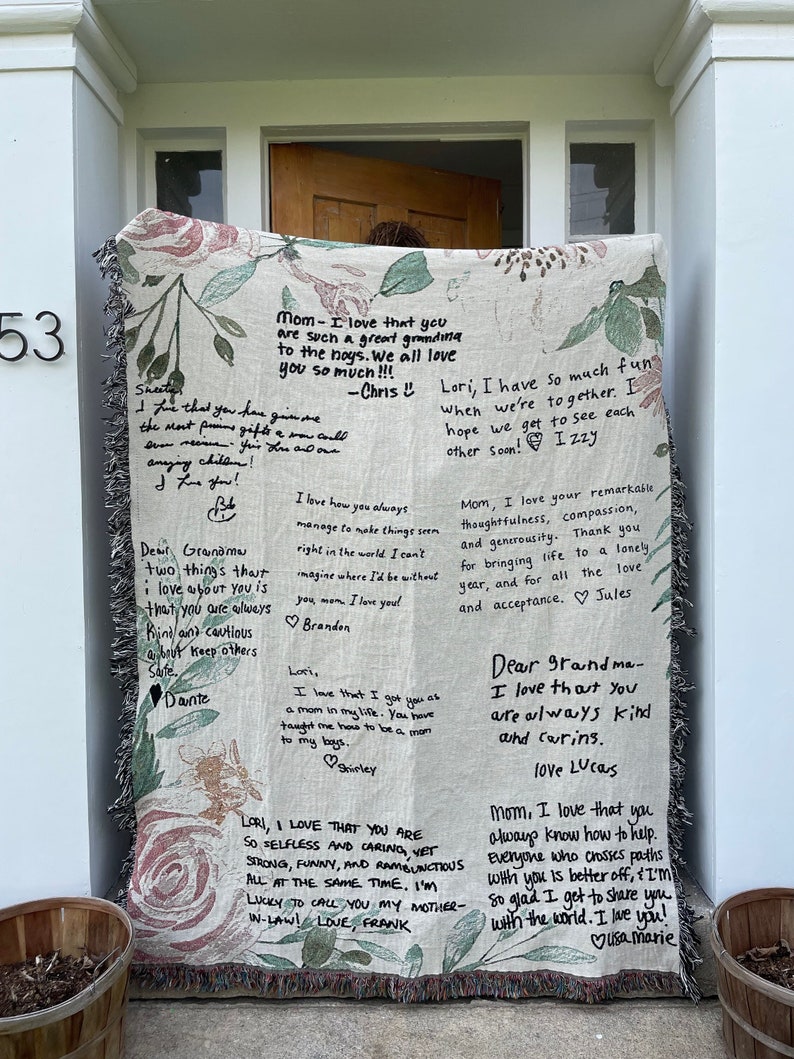 53
Mom - I love that you
are such a great grandma
to the boys. We all love
you so much!!!
- Chris
Lori, I have so much fun
when we're together. I
hope we get to see each
other soon! Izzy
Sweetie,
I love that you have given me
the most precious gifts a man could
ever receive - your love and our
amazing children!
I Love You!
Bob
I love how you always
manage to make things seem
right in the world. I can't
imagine where I'd be without
you, mom. I love you!
Brandon
Mom, I love your remarkable
thoughtfulness, compassion,
and generousity. Thank you
for bringing life to a lonely
year, and for all the love
and acceptance. ♡ Jules
Dear Grandma
two things that
i love about you is
that you are always
Kind and cautious
about keep others
safe.
♥ Dante
Lori,
I love that I got you as
a mom in my life. You have
taught me how to be a mom
to my boys.
♡ Shirley
Dear grandma-
I love that you
are always kind
and caring.
love Lucas
LORI, I LOVE THAT YOU ARE
SO SELFLESS AND CARING, YET
STRONG, FUNNY, AND RAMBUNCTIOUS
ALL AT THE SAME TIME. I'M
LUCKY TO CALL YOU MY MOTHER-
IN-LAW! LOVE, FRANK
Mom, I love that you
always know how to help.
Everyone who crosses paths
with you is better off, & I'm
so glad I get to share you
with the world. I love you!
♡ Lisa Marie